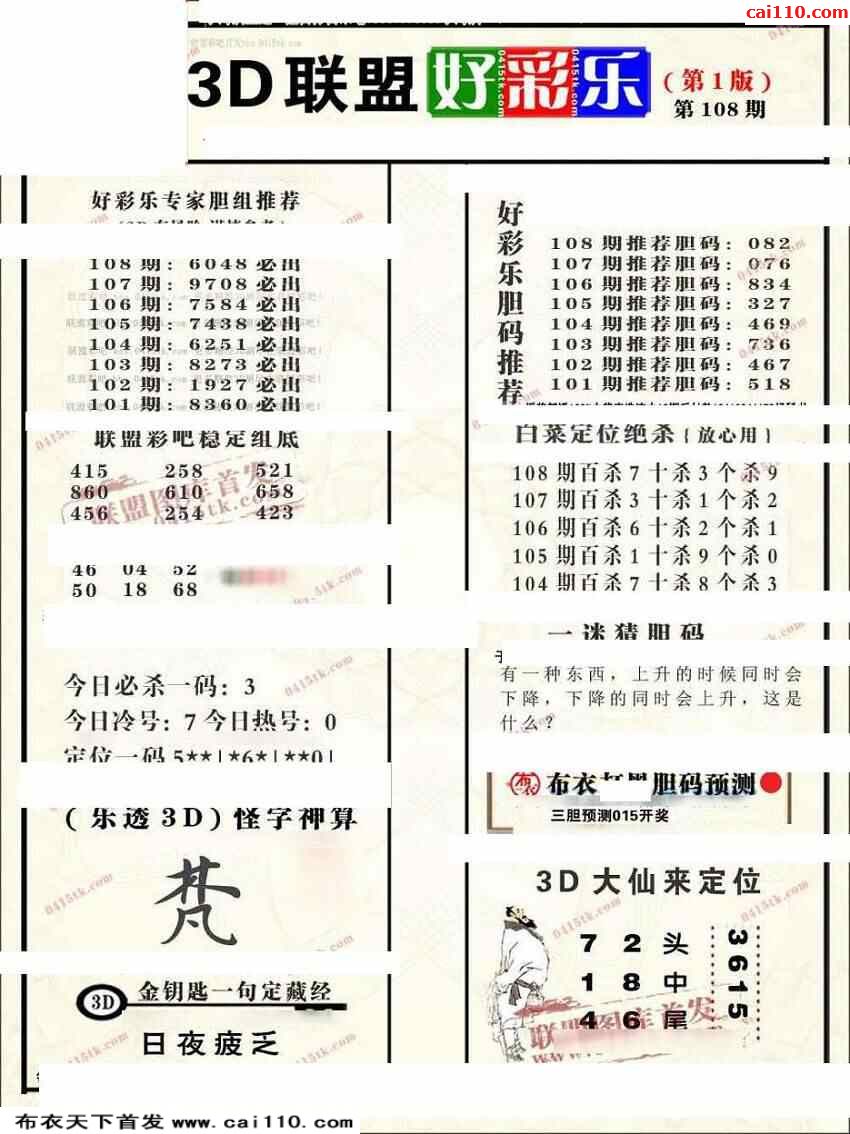 cai110.com
3D联盟好彩乐
(第1版)
第108期
好彩乐专家胆组推荐
108期：6048必出
107期：9708必出
106期：7584必出
105期：7438必出
104期：6251必出
103期：8273必出
102期：1927必出
101期：8360必出
联盟彩吧稳定组底
415 258 521
860 610 658
456 254 423
46 04 52
50 18 68
今日必杀一码：3
今日冷号：7 今日热号：0
定位一码 5**|*6*|**0|
(乐透3D)怪字神算
梵
3D
金钥匙一句定藏经
日夜疲乏
好彩乐胆码推荐
108期推荐胆码：082
107期推荐胆码：076
106期推荐胆码：834
105期推荐胆码：327
104期推荐胆码：469
103期推荐胆码：736
102期推荐胆码：467
101期推荐胆码：518
白菜定位绝杀{放心用}
108期百杀7十杀3个杀9
107期百杀3十杀1个杀2
106期百杀6十杀2个杀1
105期百杀1十杀9个杀0
104期百杀7十杀8个杀3
一谜猜胆码
有一种东西，上升的时候同时会
下降，下降的同时会上升，这是
什么？
布衣 胆码预测
三胆预测015开奖
3D大仙来定位
7 2 头
1 8 中
4 6 尾
3615
联盟图库首发
0415tk.com
布衣天下首发 www.cai110.com